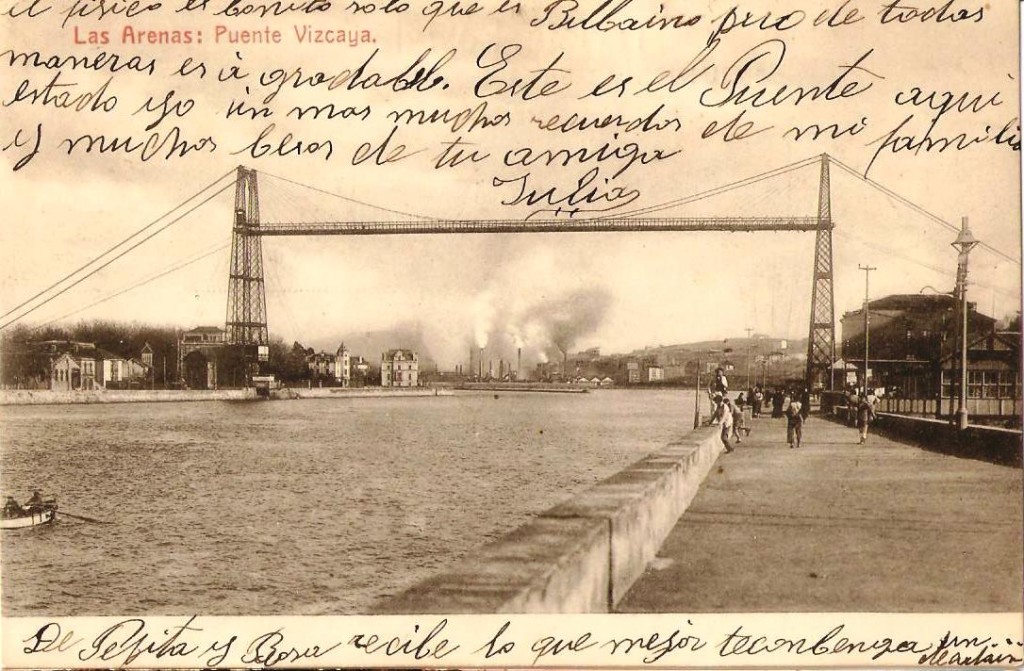 el fisico es bonito solo que es Bilbaino pero de todas
Las Arenas: Puente Vizcaya.
maneras es á gradable. Este es el Puente aqui
estado yo ún mas muchos recuerdos de mi familia
y muchos besos de tu amiga
Julia
De Pepita y Rosa recibe lo que mejor teconbenga